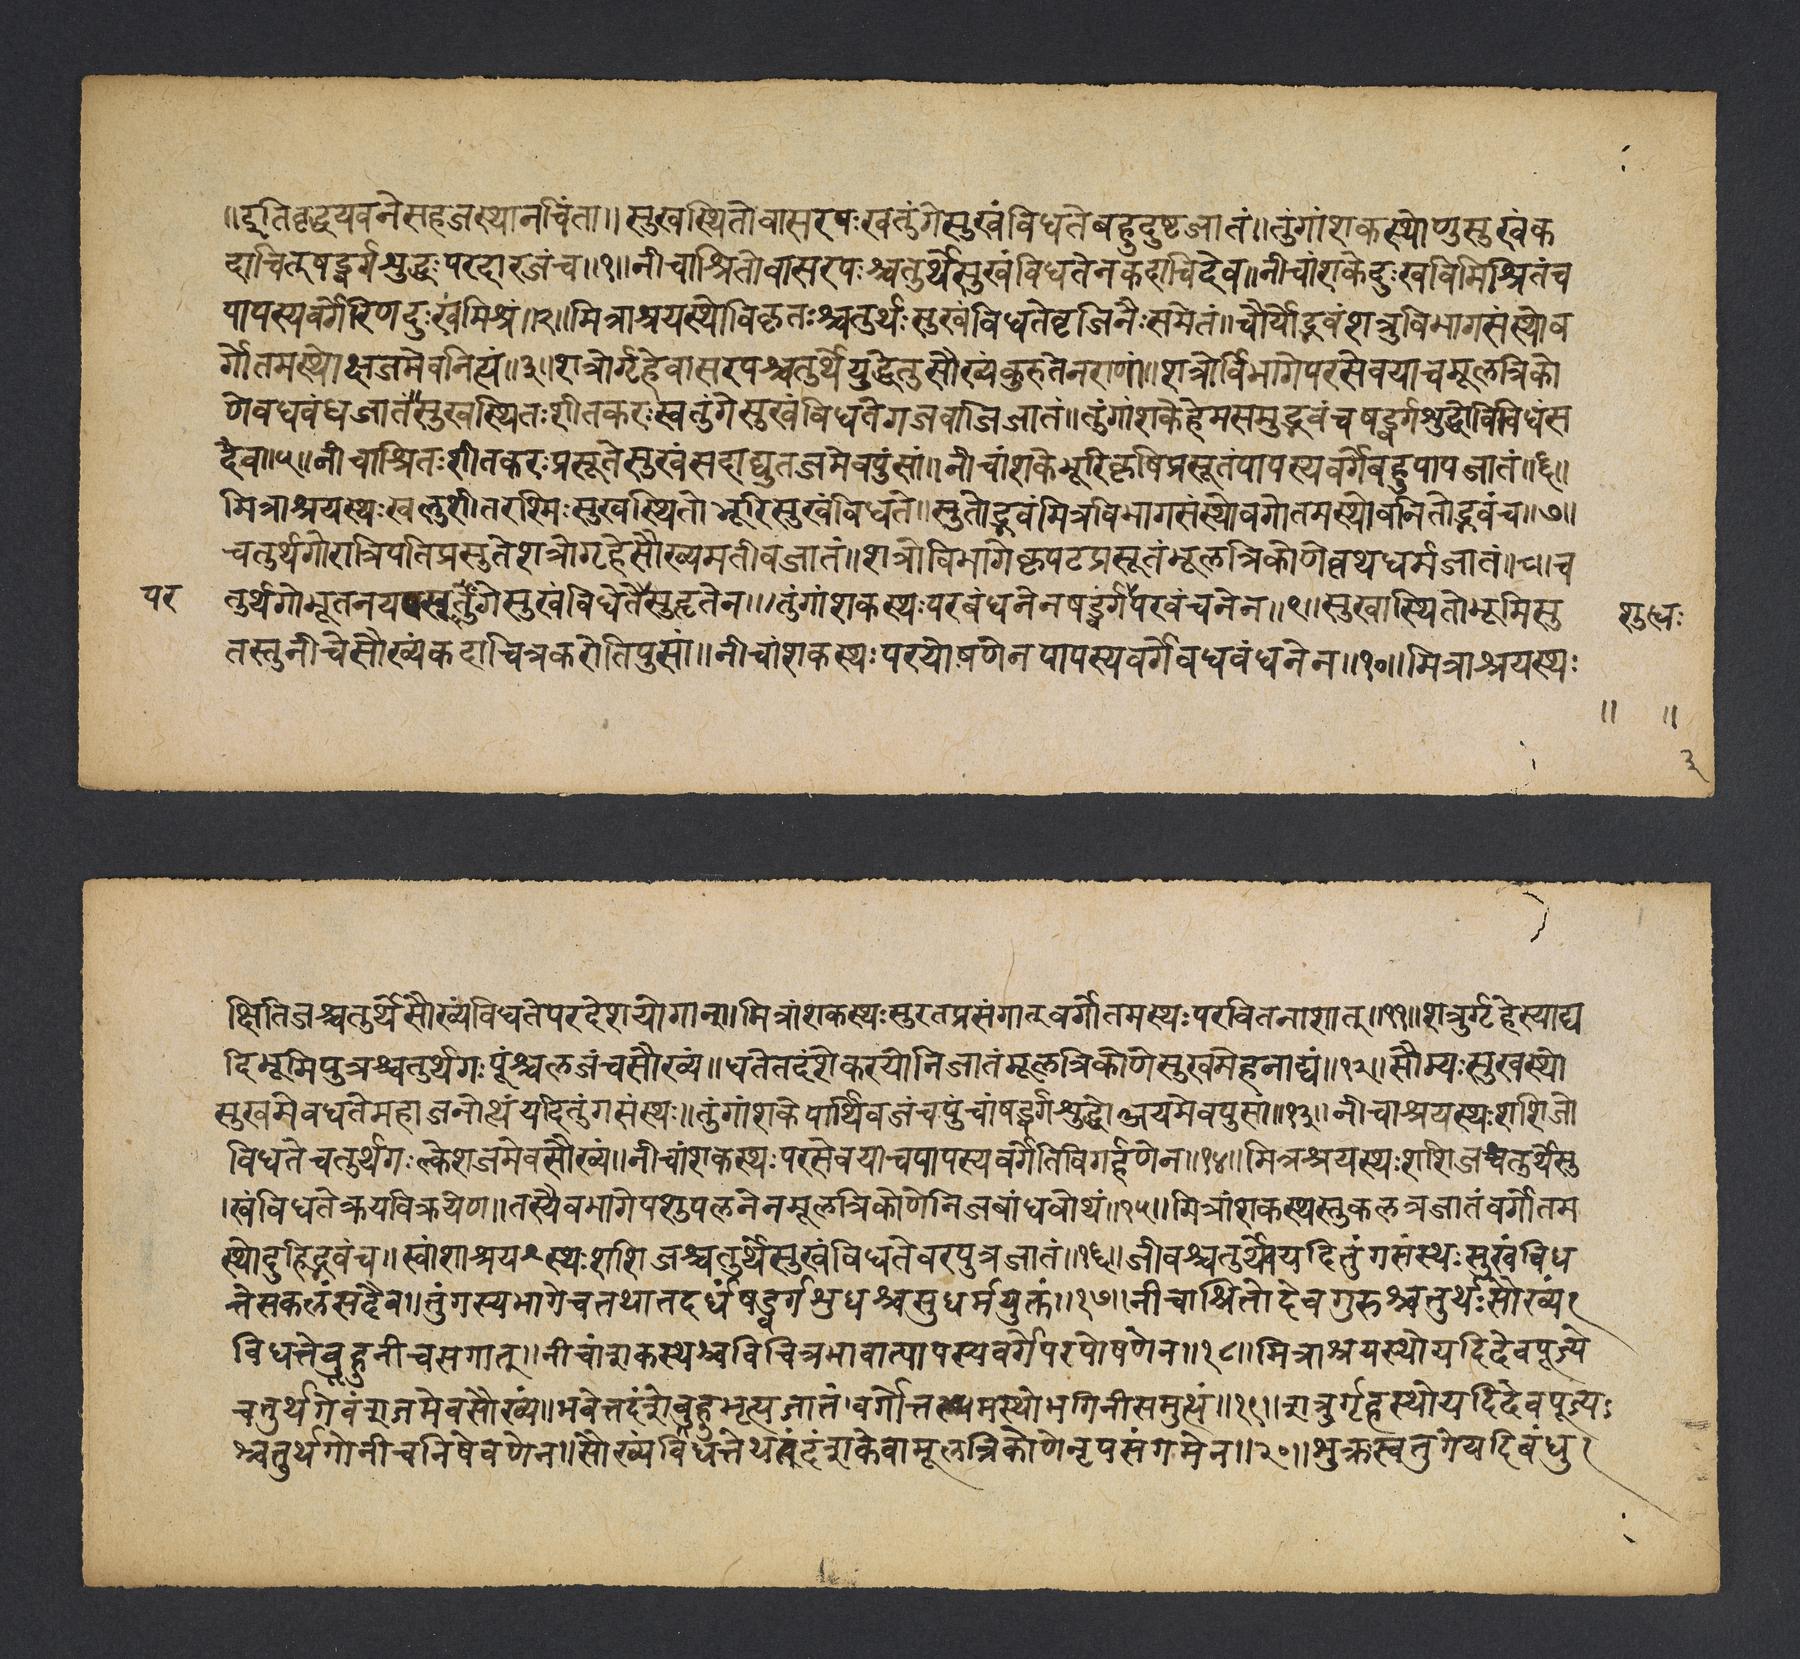 ॥इतिवृद्धयवनेसहजस्थानचिंता॥सुखस्थितोवासरपःस्वतुंगेसुखंविधतेबहुदुष्टजातं॥तुंगांशकस्थोणुसुखंक
दाचित्षड्वर्गशुद्धःपरदारजंच॥१॥नीचाश्रितोवासरपःश्चतुर्थेसुखंविधतेनकदाचिदेव॥नीचांशकेदुःखविमिश्रितंच
पापस्यवर्गेरिणदुःखमिश्रं॥२॥मित्राश्रयस्थोविकृतःश्चतुर्थःसुखंविधतेवृजिनैःसमेतं॥चौर्योद्भवंशत्रुविभागसंस्थोव
र्गोतमस्थोक्षजमेवनित्यं॥३॥शत्रोर्गृहेवासरपश्चतुर्थेयुद्धेतुसौख्यंकुरुतेनराणां॥शत्रोर्विभागेपरसेवयाचमूलत्रिको
णेवधबंधजातं॥सुखस्थितःशीतकरःस्वतुंगेसुखंविधतेगजवाजिजातं॥तुंगांशकेहेमसमुद्भवंचषड्वर्गशुद्धोविविधंस
दैवा॥५॥नीचाश्रितःशीतकरःप्रसूतेसुखंसदाद्युतजमेवपुंसां॥नीचांशकेभूरिकृषिप्रसूतंपापस्यवर्गेबहुपापजातं॥६॥
मित्राश्रयस्थःखलुशीतरश्मिःसुखस्थितोभूरिसुखंविधते॥सुतोद्भवंमित्रविभागसंस्थोवर्गोतमस्थोर्वनितोद्भवंच॥७॥
चतुर्थगोरात्रिपतिप्रसुतेशत्रोगृहेसौख्यमतीवजातं॥शत्रोविभागेकपटप्रसूतंमूलत्रिकोणेत्वथधर्मजातं॥८॥च
पर
तुर्थगोभूतनयस्वतुंगेसुखंविधेतेसुहृतेन॥तुंगांशकस्थःपरबंधनेनषड्वर्गपरवंचनेन॥९॥सुखास्थितोभूमिसु
शुत्धः
तस्तुनीचेसौख्यंकदाचित्रकरोतिपुसां॥नीचांशकस्थःपरयोषणेनपापस्यवर्गेवधबंधनेन॥१०॥मित्राश्रयस्थः
॥ ॥
३
क्षितिजश्चतुर्थेसौख्यंविधतेपरदेशयोगान्॥मित्रांशकस्थःसुरतप्रसंगात्वर्गोतमस्थःपरवितनाशात्॥११॥शत्रुर्गृहेस्याद्य
दिभूमिपुत्रश्चतुर्थगःपूंश्चलजंचसौख्यं॥धतेतदंशेकरयोनिजातंमूलत्रिकोणेसुखमेहनाद्यं॥१२॥सौम्यःसुखस्थो
सुखमेवधतेमहाजनोत्थंयदितुंगसंस्थः॥तुंगांशकेपार्थिवजंचपुंचांषड्वर्गशुद्धोभ्रयमेवपुसां॥१३॥नीचाश्रयस्थःशशिजो
विधतेचतुर्थगःत्क्लेशजमेवसौख्यं॥नीचांशकस्थःपरसेवयाचपापस्यवर्गेतिविगर्हणेन॥१४॥मित्रश्रयस्थःशशिजश्चतुर्थेसु
।खंविधतेक्रयविक्रयेण॥तस्यैवभागेपशुपलनेनमूलत्रिकोणेनिजबांधवोथं॥१५॥मित्रांशकस्थस्तुकलत्रजातंवर्गोतम
स्थोदुहिद्भवंच॥स्वांशाश्रयस्थःशशिजश्चतुर्थेसुखंविधतेवरपुत्रजातं॥१६॥जीवश्चतुर्थेयदितुंगसंस्थःसुखंविध
त्तेसकलंसदैव॥तुंगस्यभागेचतथातदर्धंषड्वर्गशुधश्चसुधर्मयुक्तं॥१७॥नीचाश्रितोदेवगुरुश्चतुर्थःसौख्यं
विधत्तेबहुनीचसगात्॥नीचांशकस्थश्चविचित्रभावात्पापस्यवर्गेपरपोषणेन॥१८॥मित्राश्रयस्थोयदिदेवपूज्ये
चतुर्थगेबंशजमेवसौख्यं॥भवेत्तदंशेबहुभृत्यजातंवर्गोत्तमस्थोभगिनीसमुत्थं॥१९॥शत्रुर्गृहस्थोयदिदेवपूज्य
श्चतुर्थगोनीचनिषेवणेन॥सौख्यंविधत्तेथतदंशकेवामूलत्रिकोणेनृपसंगमेन॥२०॥भुक्रस्वतुगेयदिबंधु